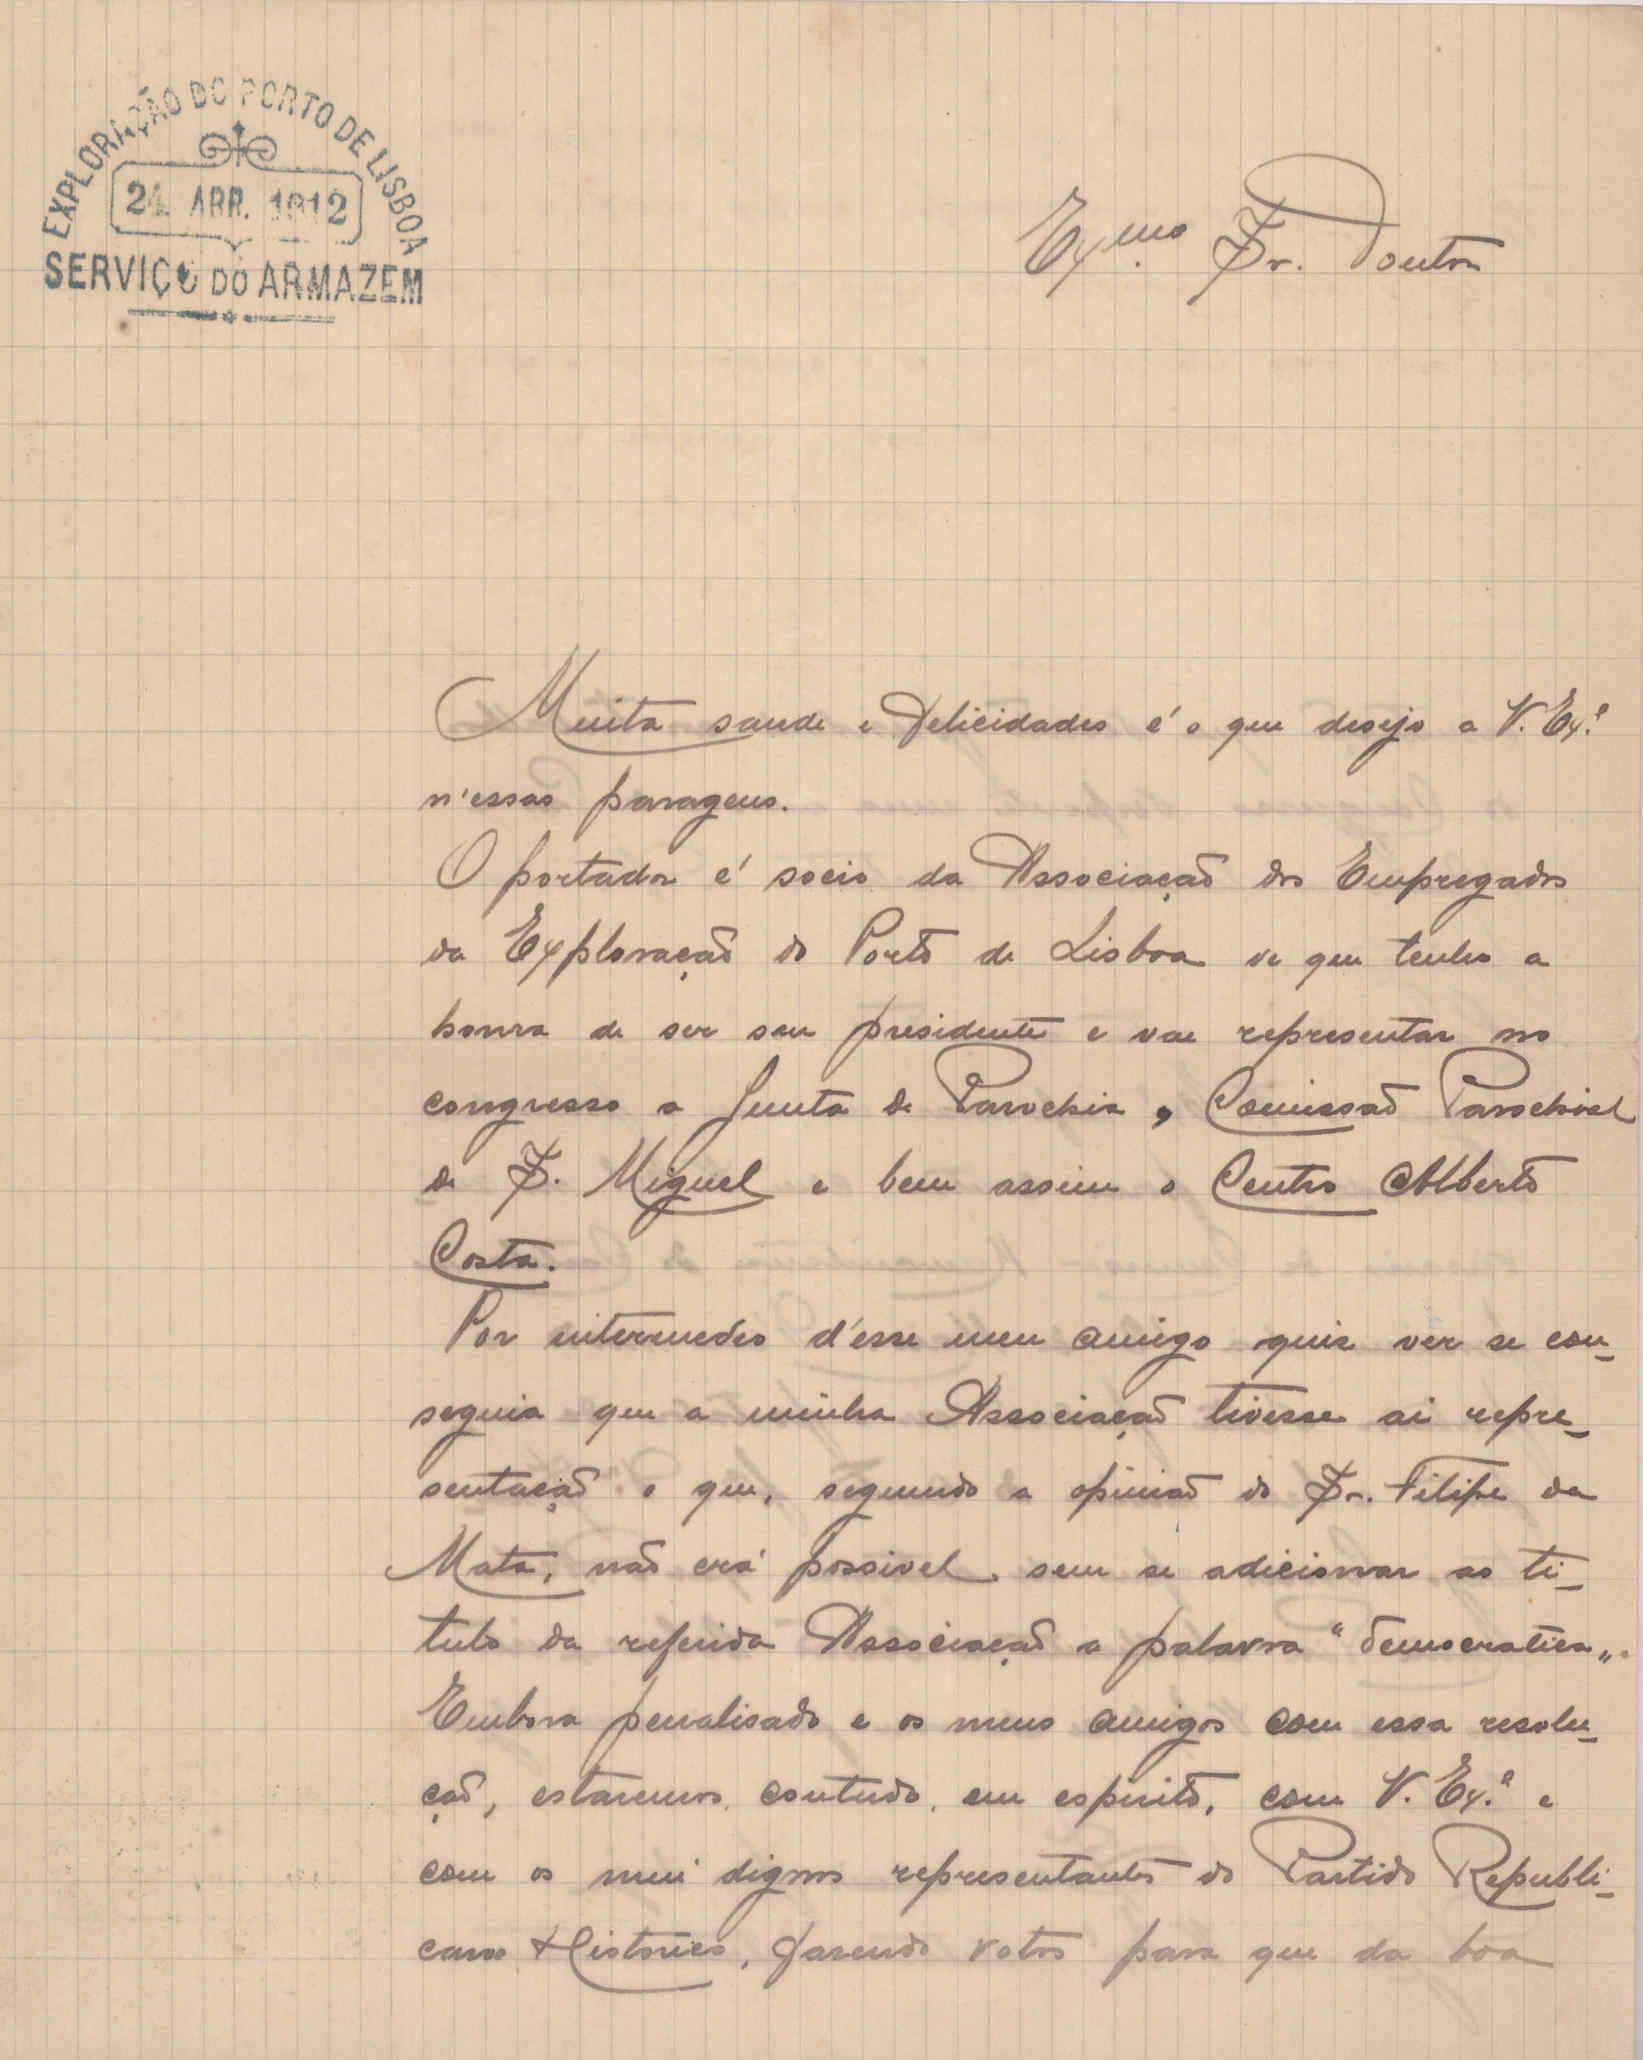 EXPLORAÇÃO DO PORTO DE LISBOA
24 ABR. 1912
SERVIÇO DO ARMAZEM
Ex.mo Sr. Doutor
Muita saude e felicidades é o que desejo a V. Ex.ª
n'essas paragens.
O portador é socio da Associação dos Empregados
da Exploração do Porto de Lisboa de que tenho a
honra de ser seu presidente e vae representar no
congresso a Junta de Parochia, Comissão Parochial
de S. Miguel e bem assim o Centro Alberto
Costa.
Por intermedeo d'esse meu amigo quis ver se con-
seguia que a minha Associação tivesse ai repre-
sentação o que, segundo a opinião do Sr. Filipe da
Mata, não erá possivel sem se adicionar ao ti-
tulo da referida Associação a palavra "democratica".
Embora penalisado e os meus amigos com essa resolu-
ção, estaremos, contudo, em espirito, com V. Ex.ª e
com os mui dignos representantes do Partido Republi-
cano Historico, fazendo votos para que da boa